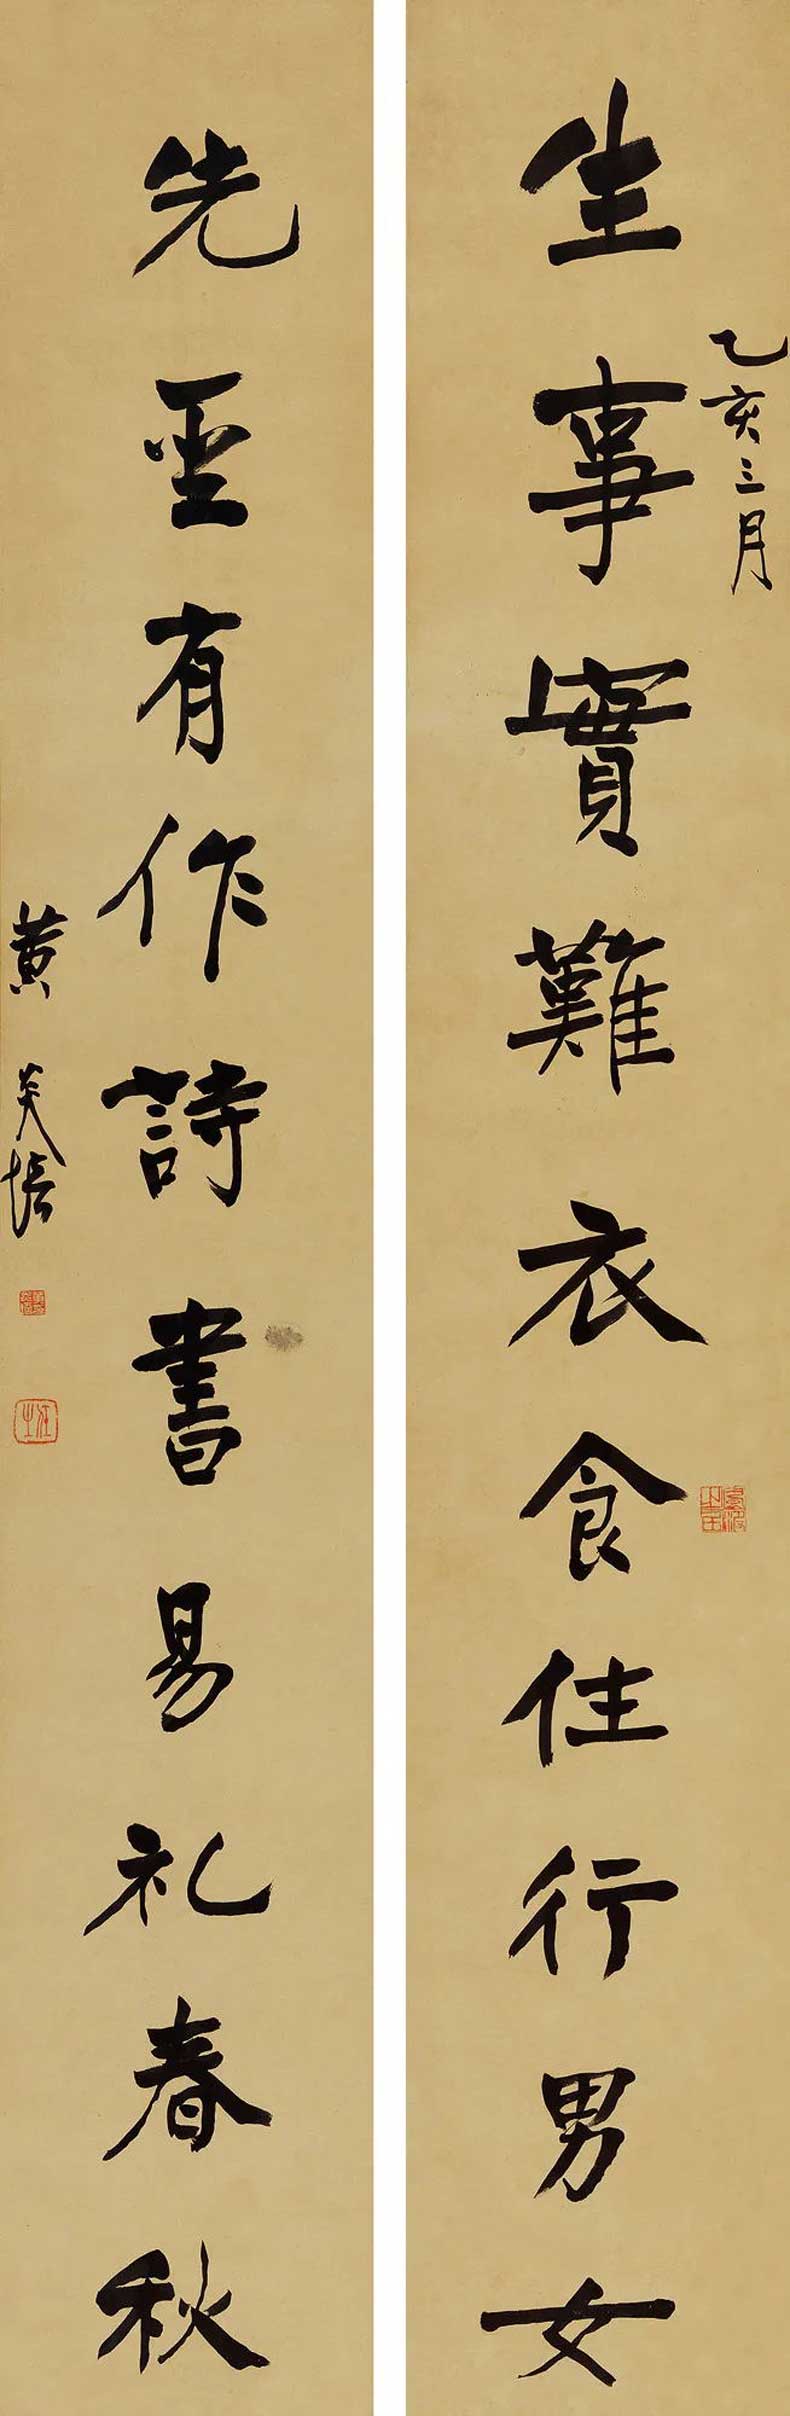 乙亥三月
生事實難衣食住行男女
先聖有作詩書易礼春秋
黄炎培